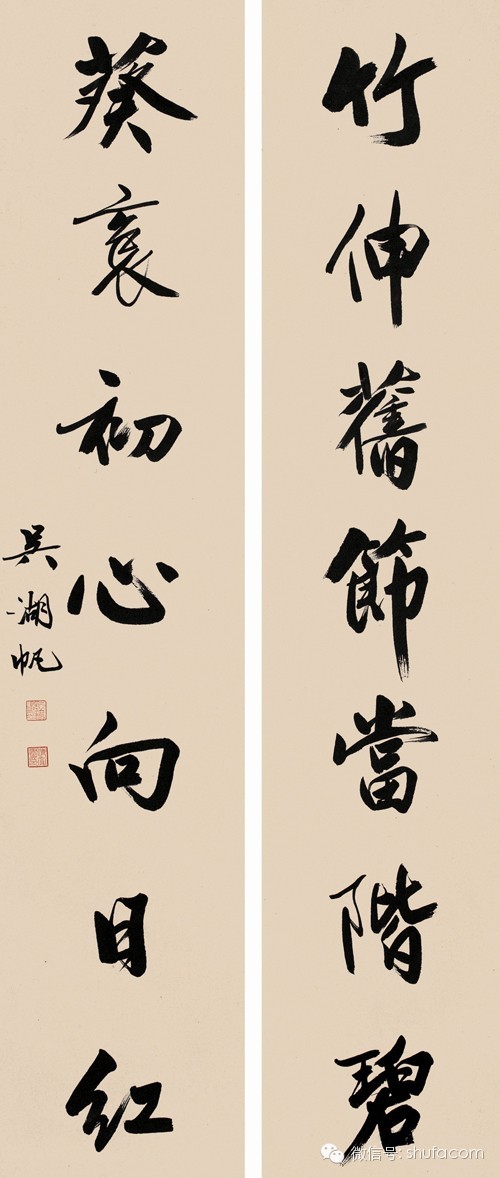 竹伸舊節當階碧
葵褱初心向日紅
吳湖帆
微信号: shufacom